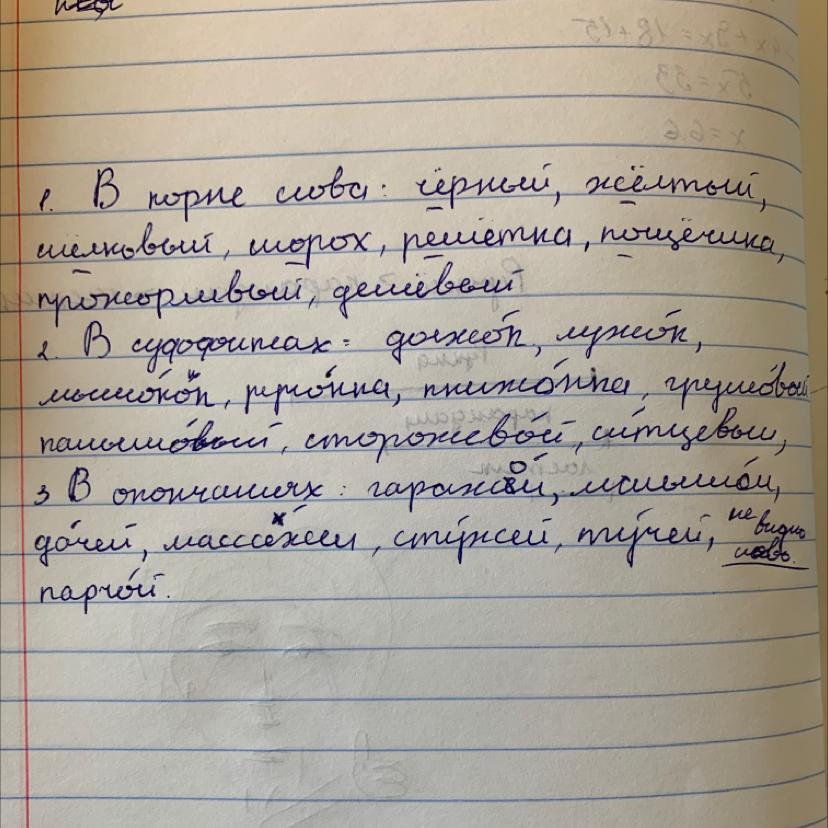 -4x+9x=18+15
5x=33
x=6.6
1. В корне слова: чёрный, жёлтый,
шёлковый, шорох, решётка, пощёчина,
прожорливый, дешёвый
2. В суффиксах: должо́к, лужо́к,
мышо́нок, ручо́нка, книжо́нка, грушо́вый
плюшо́вый, сторожево́й, си́тцевый,
3 В окончаниях: гаражо́й, малышо́м,
да́чей, масса́жем, сту́жей, ту́чей, не видно слово.
парчо́й.